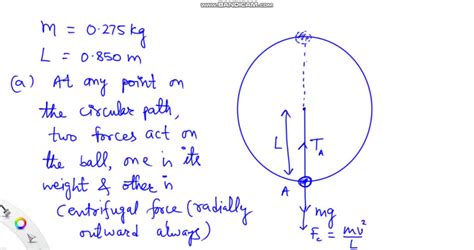 www.BANDICAM.com
m = 0.275 kg
L = 0.850 m
(a) At any point on
the circular path,
two forces act on
the ball, one in its
weight & other in
centrifugal force (radially
outward always)
L
T_A
A
mg
F_c = mv²/L